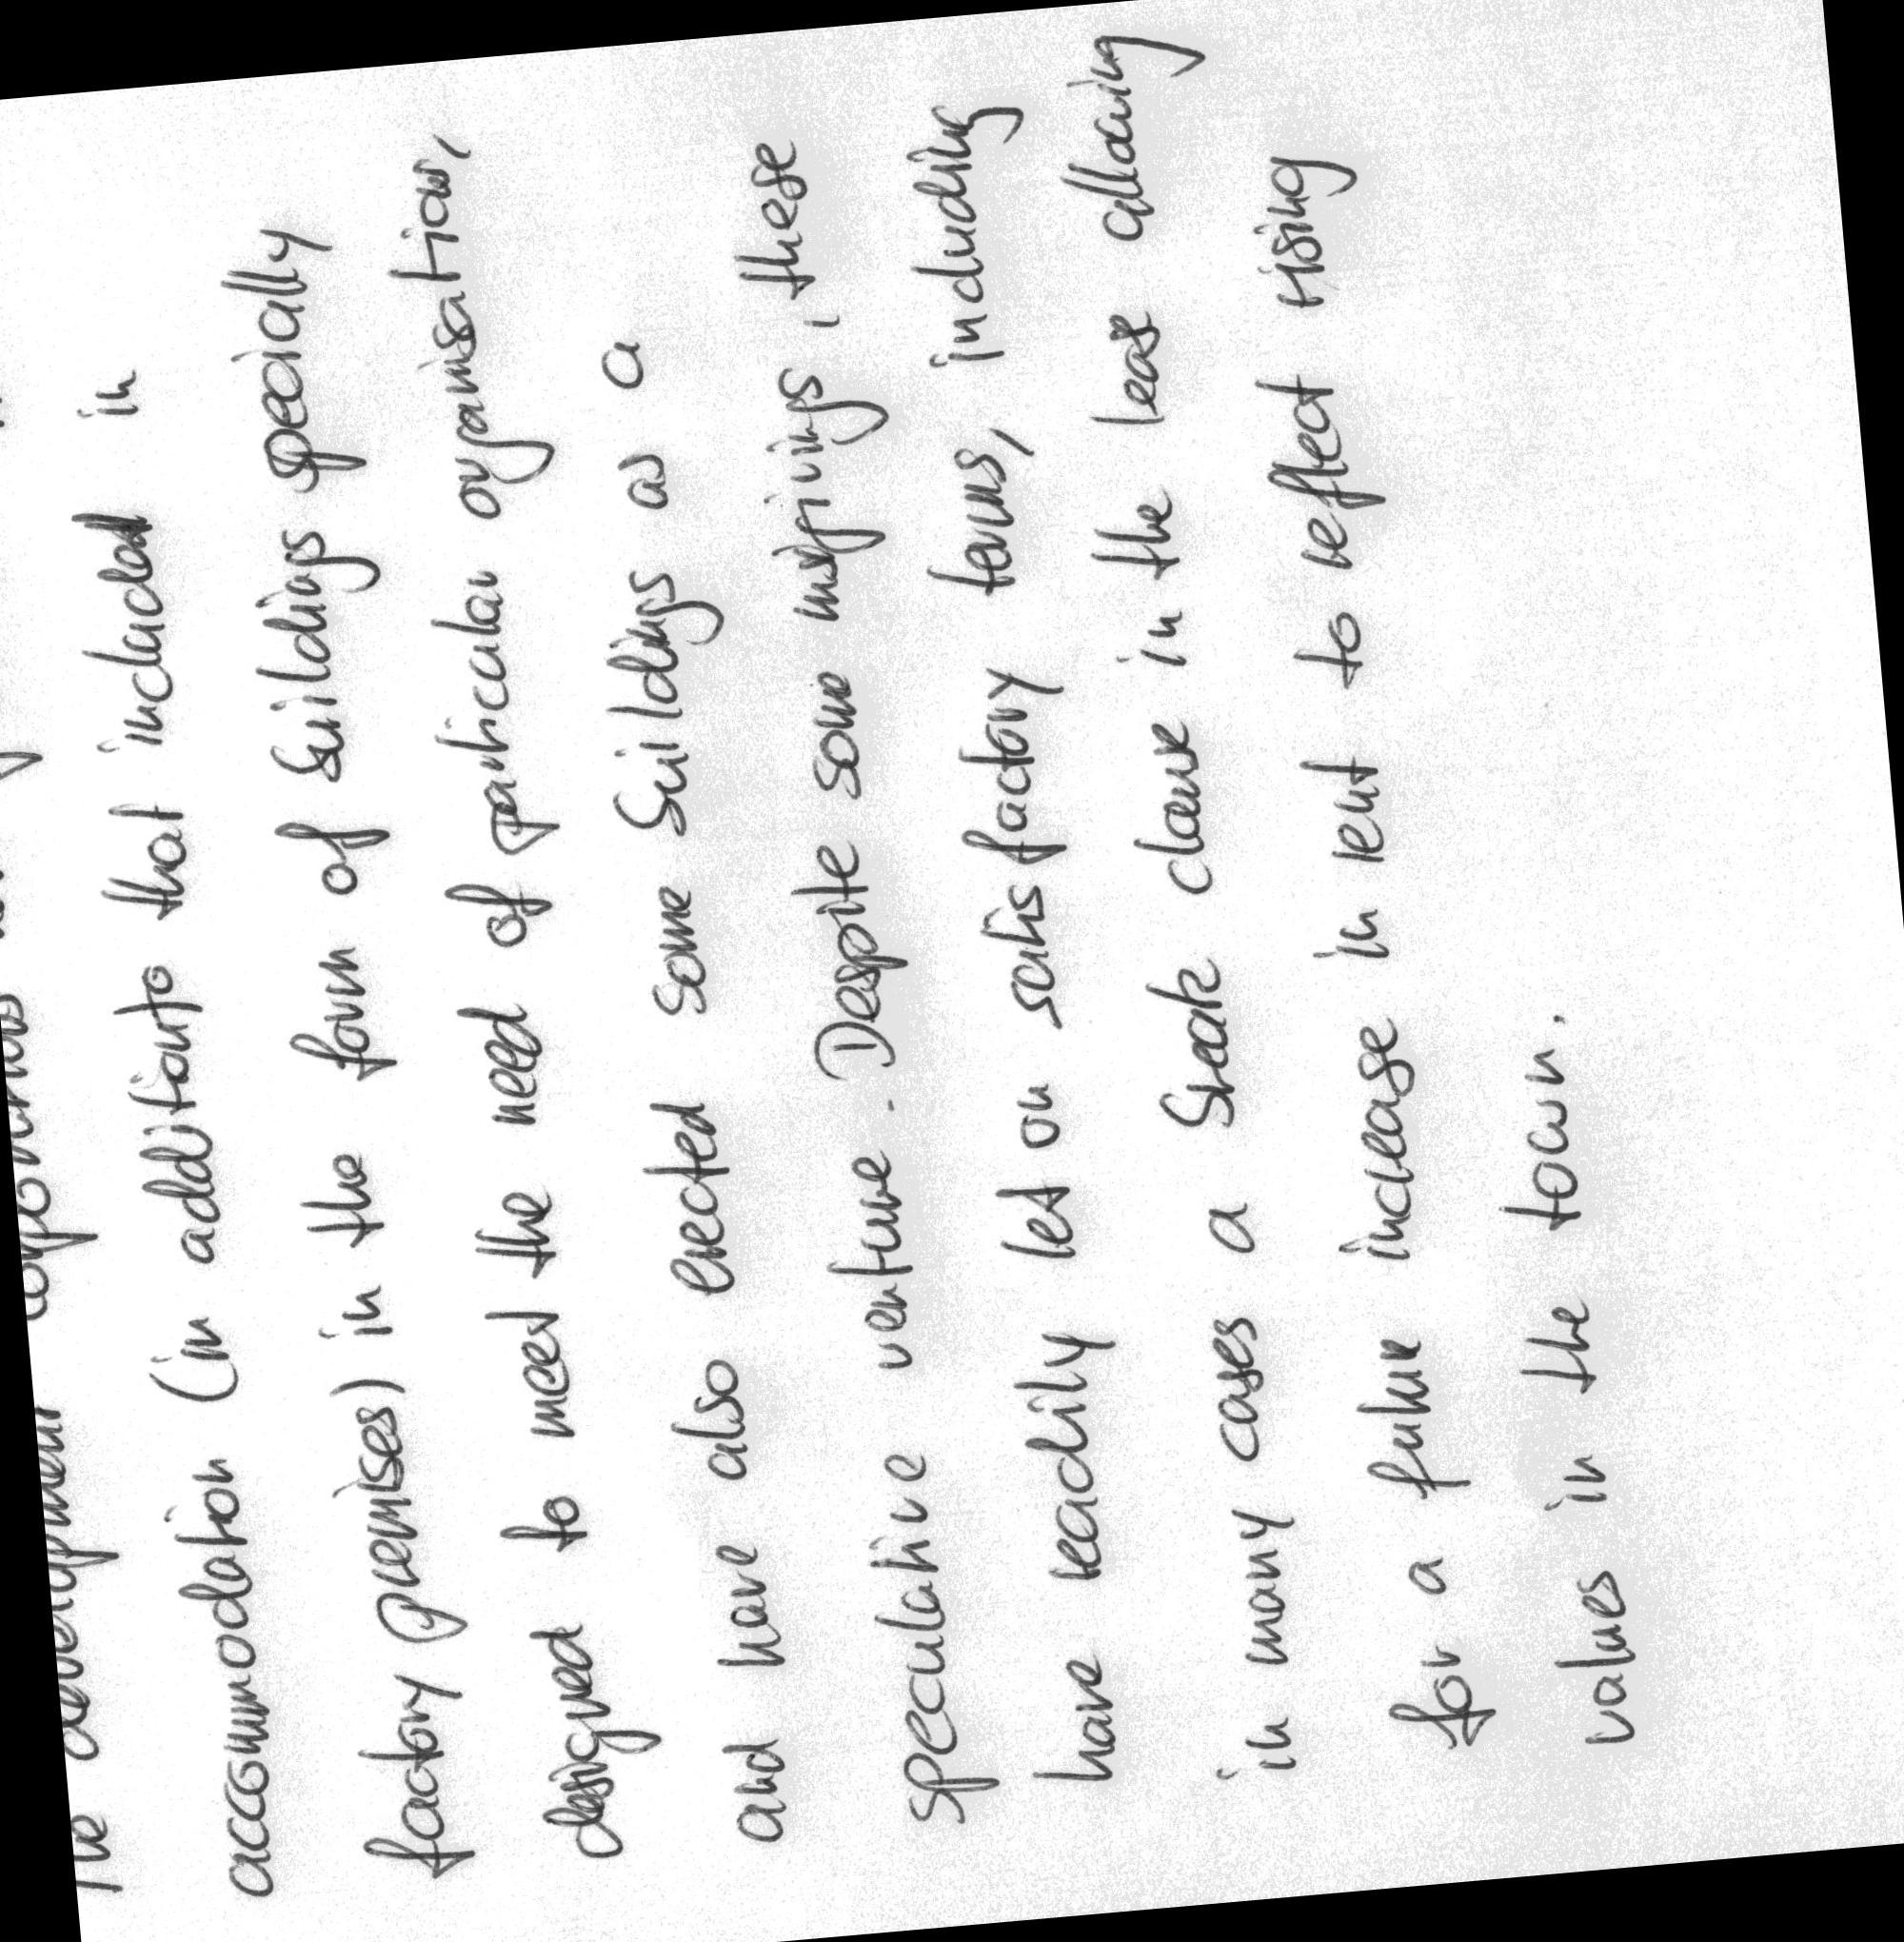 The development corporations
accommodation (in addition to that included in
factory premises) in the form of buildings specially
designed to meet the need of particular organisations,
and have also erected some buildings as a
speculative venture. Despite some misgivings, these
have readily let on satisfactory terms, including
in many cases a break clause in the lease allowing
for a future increase in rent to reflect rising
values in the town.